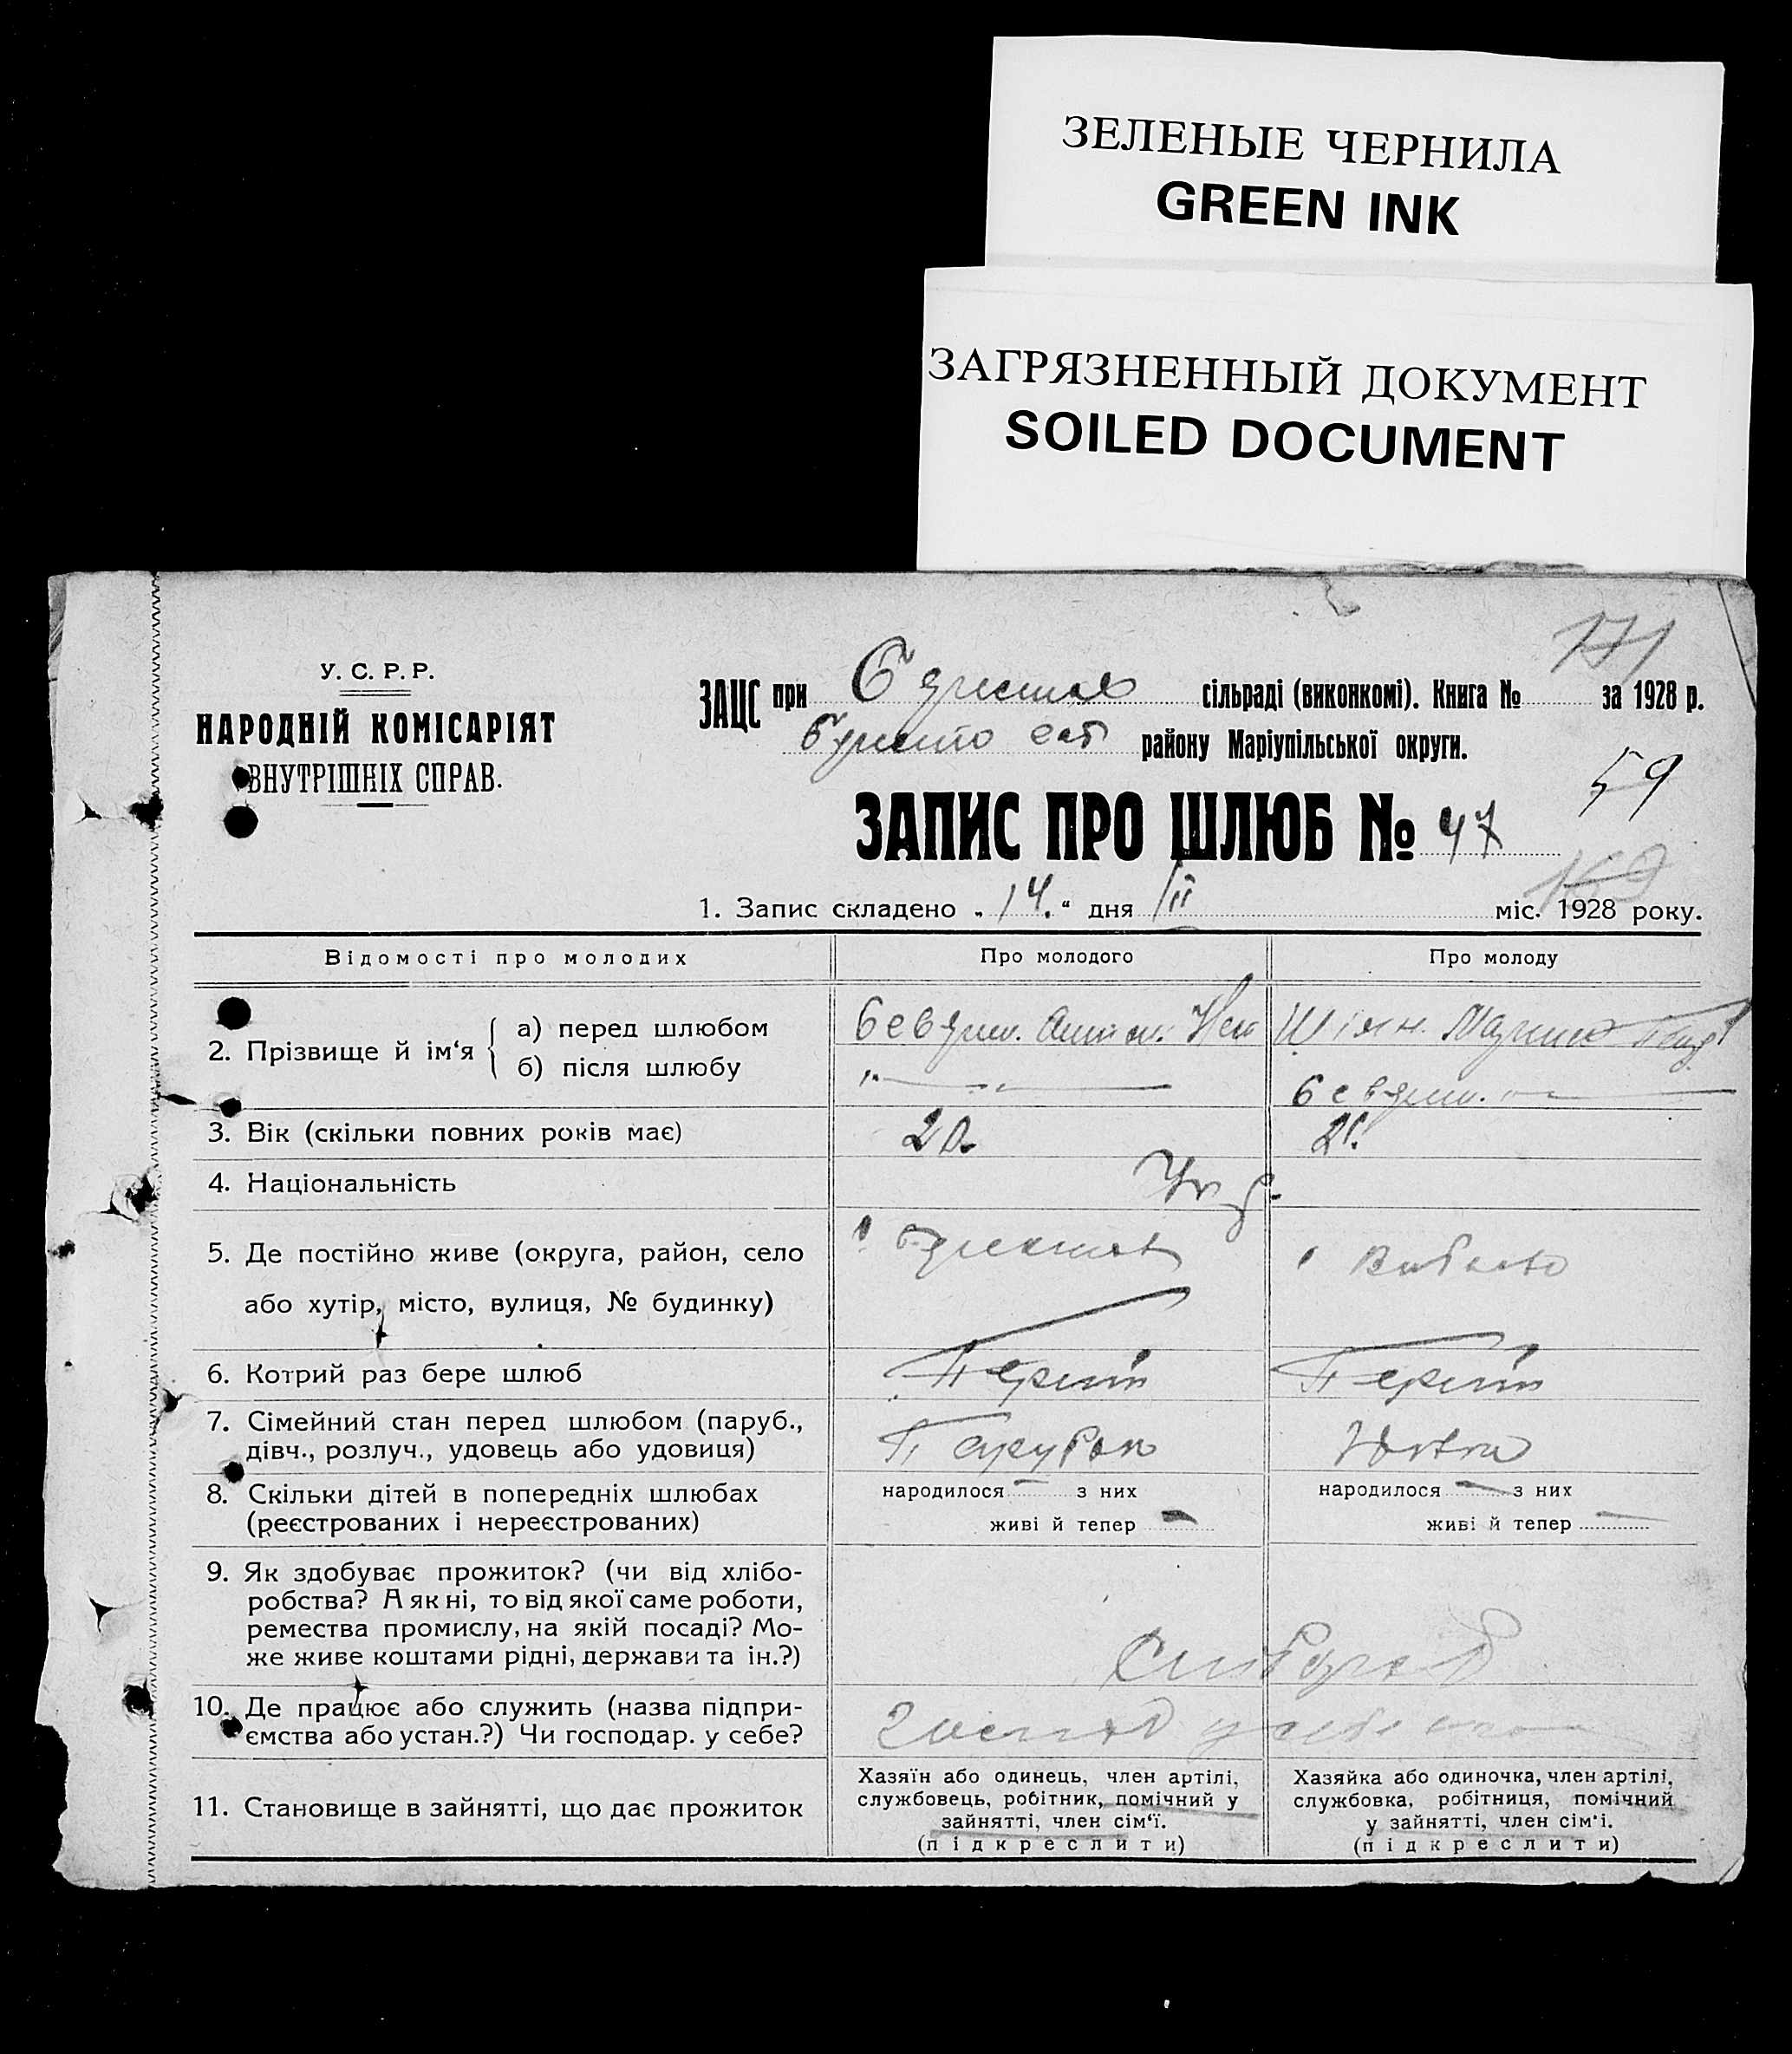 ЗЕЛЕНЫЕ ЧЕРНИЛА
GREEN INK
ЗАГРЯЗНЕННЫЙ ДОКУМЕНТ
SOILED DOCUMENT
171
У. С. Р. Р.
НАРОДНІЙ КОМІСАРІЯТ
ВНУТРІШНІХ СПРАВ.
ЗАЦС при сільраді (виконкомі). Книга № за 1928 р.
району Маріупільської округи.
59
ЗАПИС ПРО ШЛЮБ № 47
169
1. Запис складено „14.“ дня III міс. 1928 року.
Відомості про молодих
Про молодого
Про молоду
2. Прізвище й ім‘я { а) перед шлюбом
б) після шлюбу
3. Вік (скільки повних років має)
20.
21.
4. Національність
Укр.
5. Де постійно живе (округа, район, село
або хутір, місто, вулиця, № будинку)
6. Котрий раз бере шлюб
Перший
Перший
7. Сімейний стан перед шлюбом (паруб.,
дівч., розлуч., удовець або удовиця)
Парубок
8. Скільки дітей в попередніх шлюбах
(реєстрованих і нереєстрованих)
народилося — з них
живі й тепер —
народилося — з них
живі й тепер —
9. Як здобуває прожиток? (чи від хлібо-
робства? А як ні, то від якої саме роботи,
ремества промислу, на якій посаді? Мо-
же живе коштами рідні, держави та ін.?)
10. Де працює або служить (назва підпри-
ємства або устан.?) Чи господар. у себе?
11. Становище в зайнятті, що дає прожиток
Хазяїн або одинець, член артілі,
службовець, робітник, помічний у
зайнятті, член сім‘ї.
(підкреслити)
Хазяйка або одиночка, член артілі,
службовка, робітниця, помічний
у зайнятті, член сім‘і.
(підкреслити)